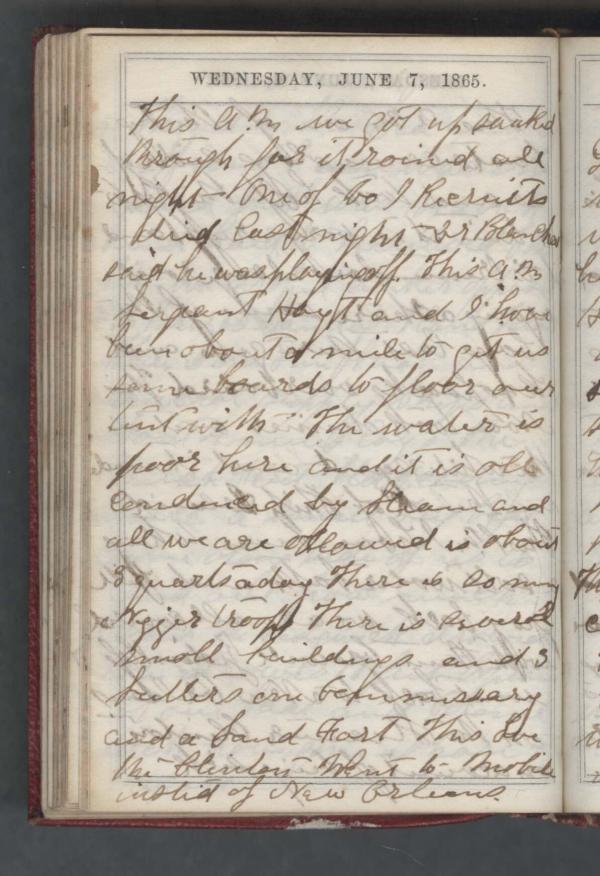 WEDNESDAY, JUNE 7, 1865.
This A.M we got up soaked
through for it rained all
night One of Co I Recruits
died last night Dr Blanchar
said he was playing off. This A.M
Sergeant Hoyt and I have
been about a mile to get us
some boards to floor our
tent with The water is
poor here and it is all
condenced by Steam and
all we are allowed is about
3 quarts a day There is so many
Nigger troops There is several
small buildings and 3
Sutlers one Commissary
and a Sand Fort This Eve
the Clinton Went to Mobile
insted of New Orleans.